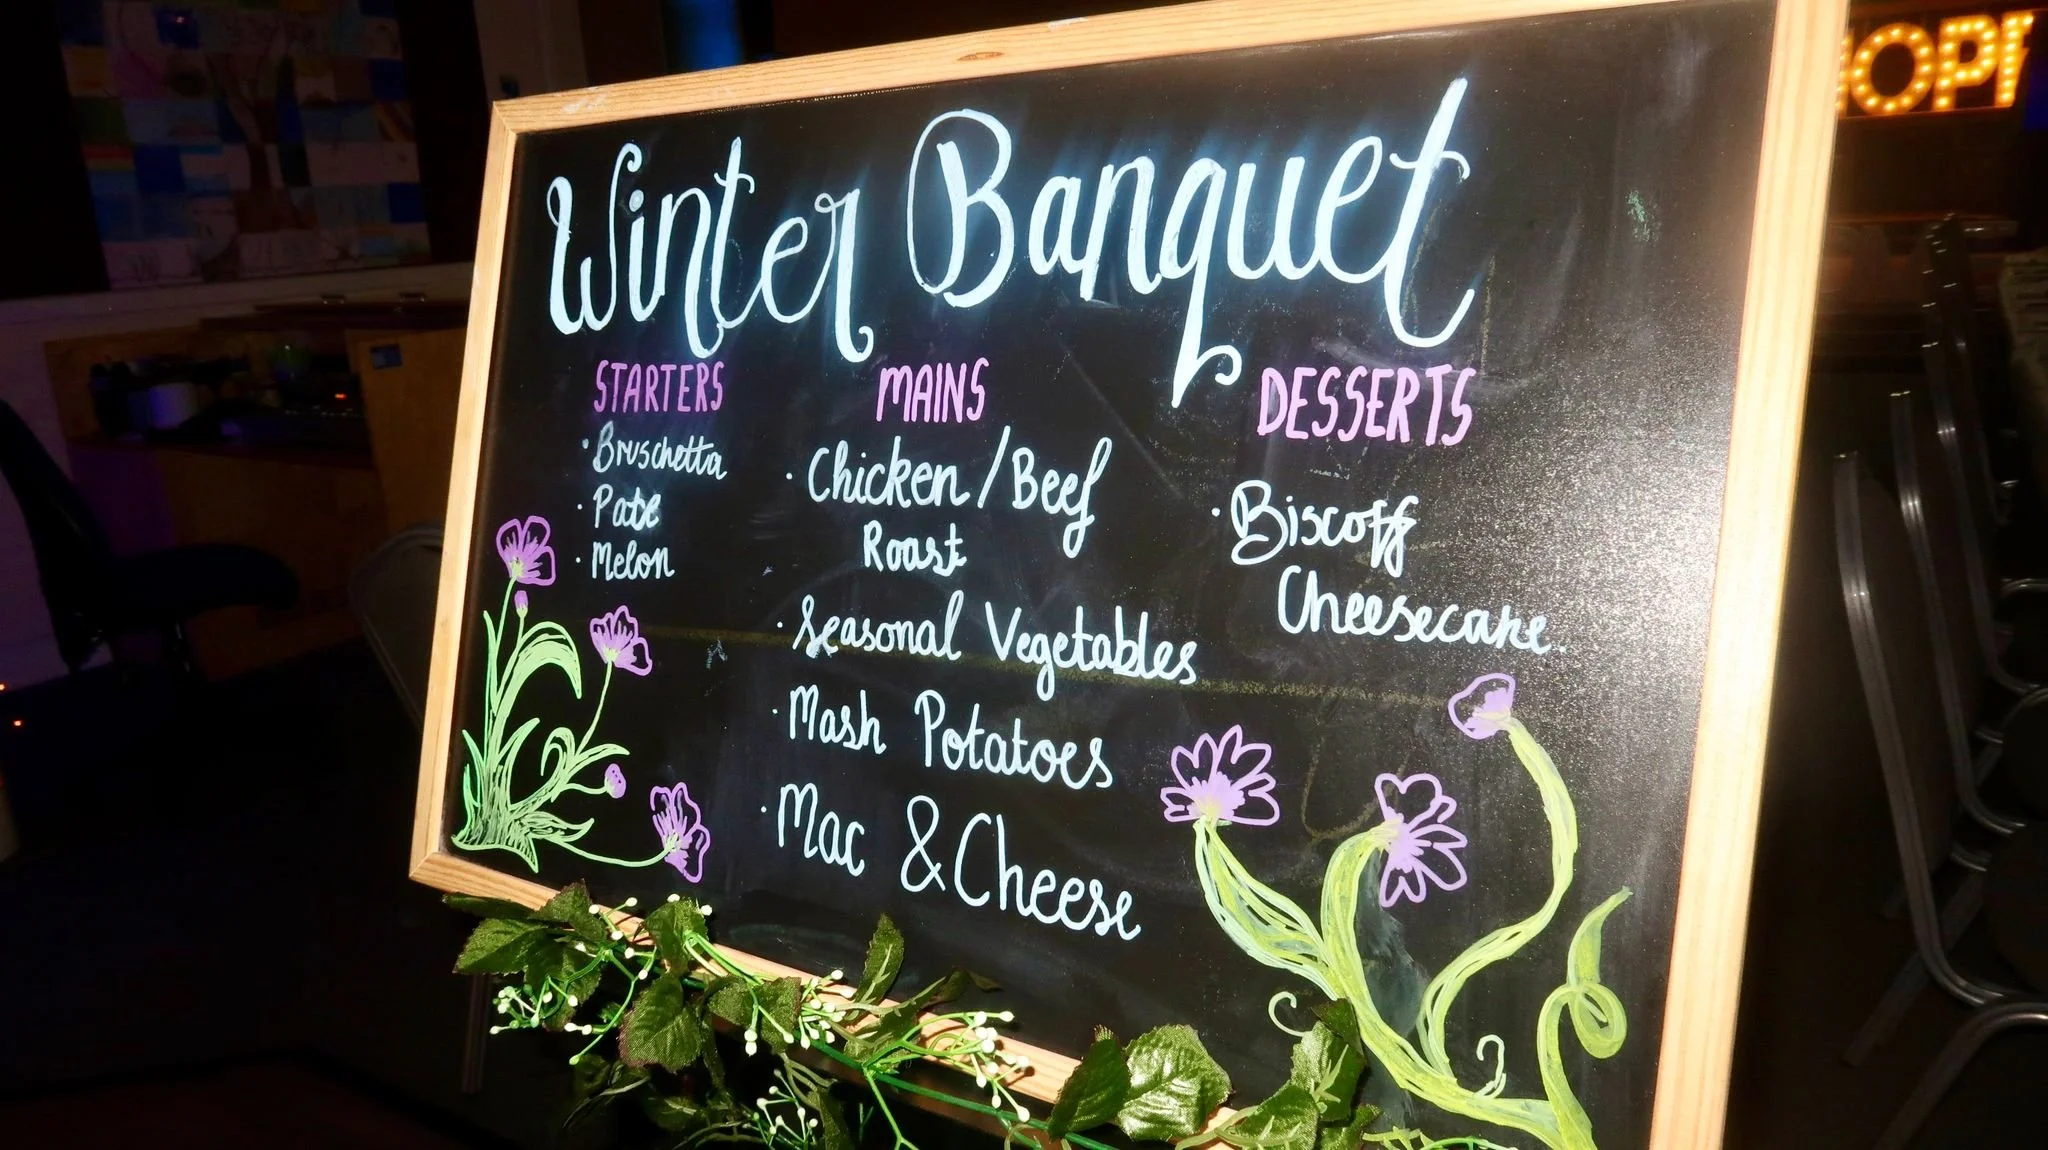 Winter Banquet
STARTERS
· Bruschetta
· Pate
· Melon
MAINS
· Chicken / Beef
Roast
· Seasonal Vegetables
· Mash Potatoes
· Mac & Cheese
DESSERTS
· Biscoff
Cheesecake.